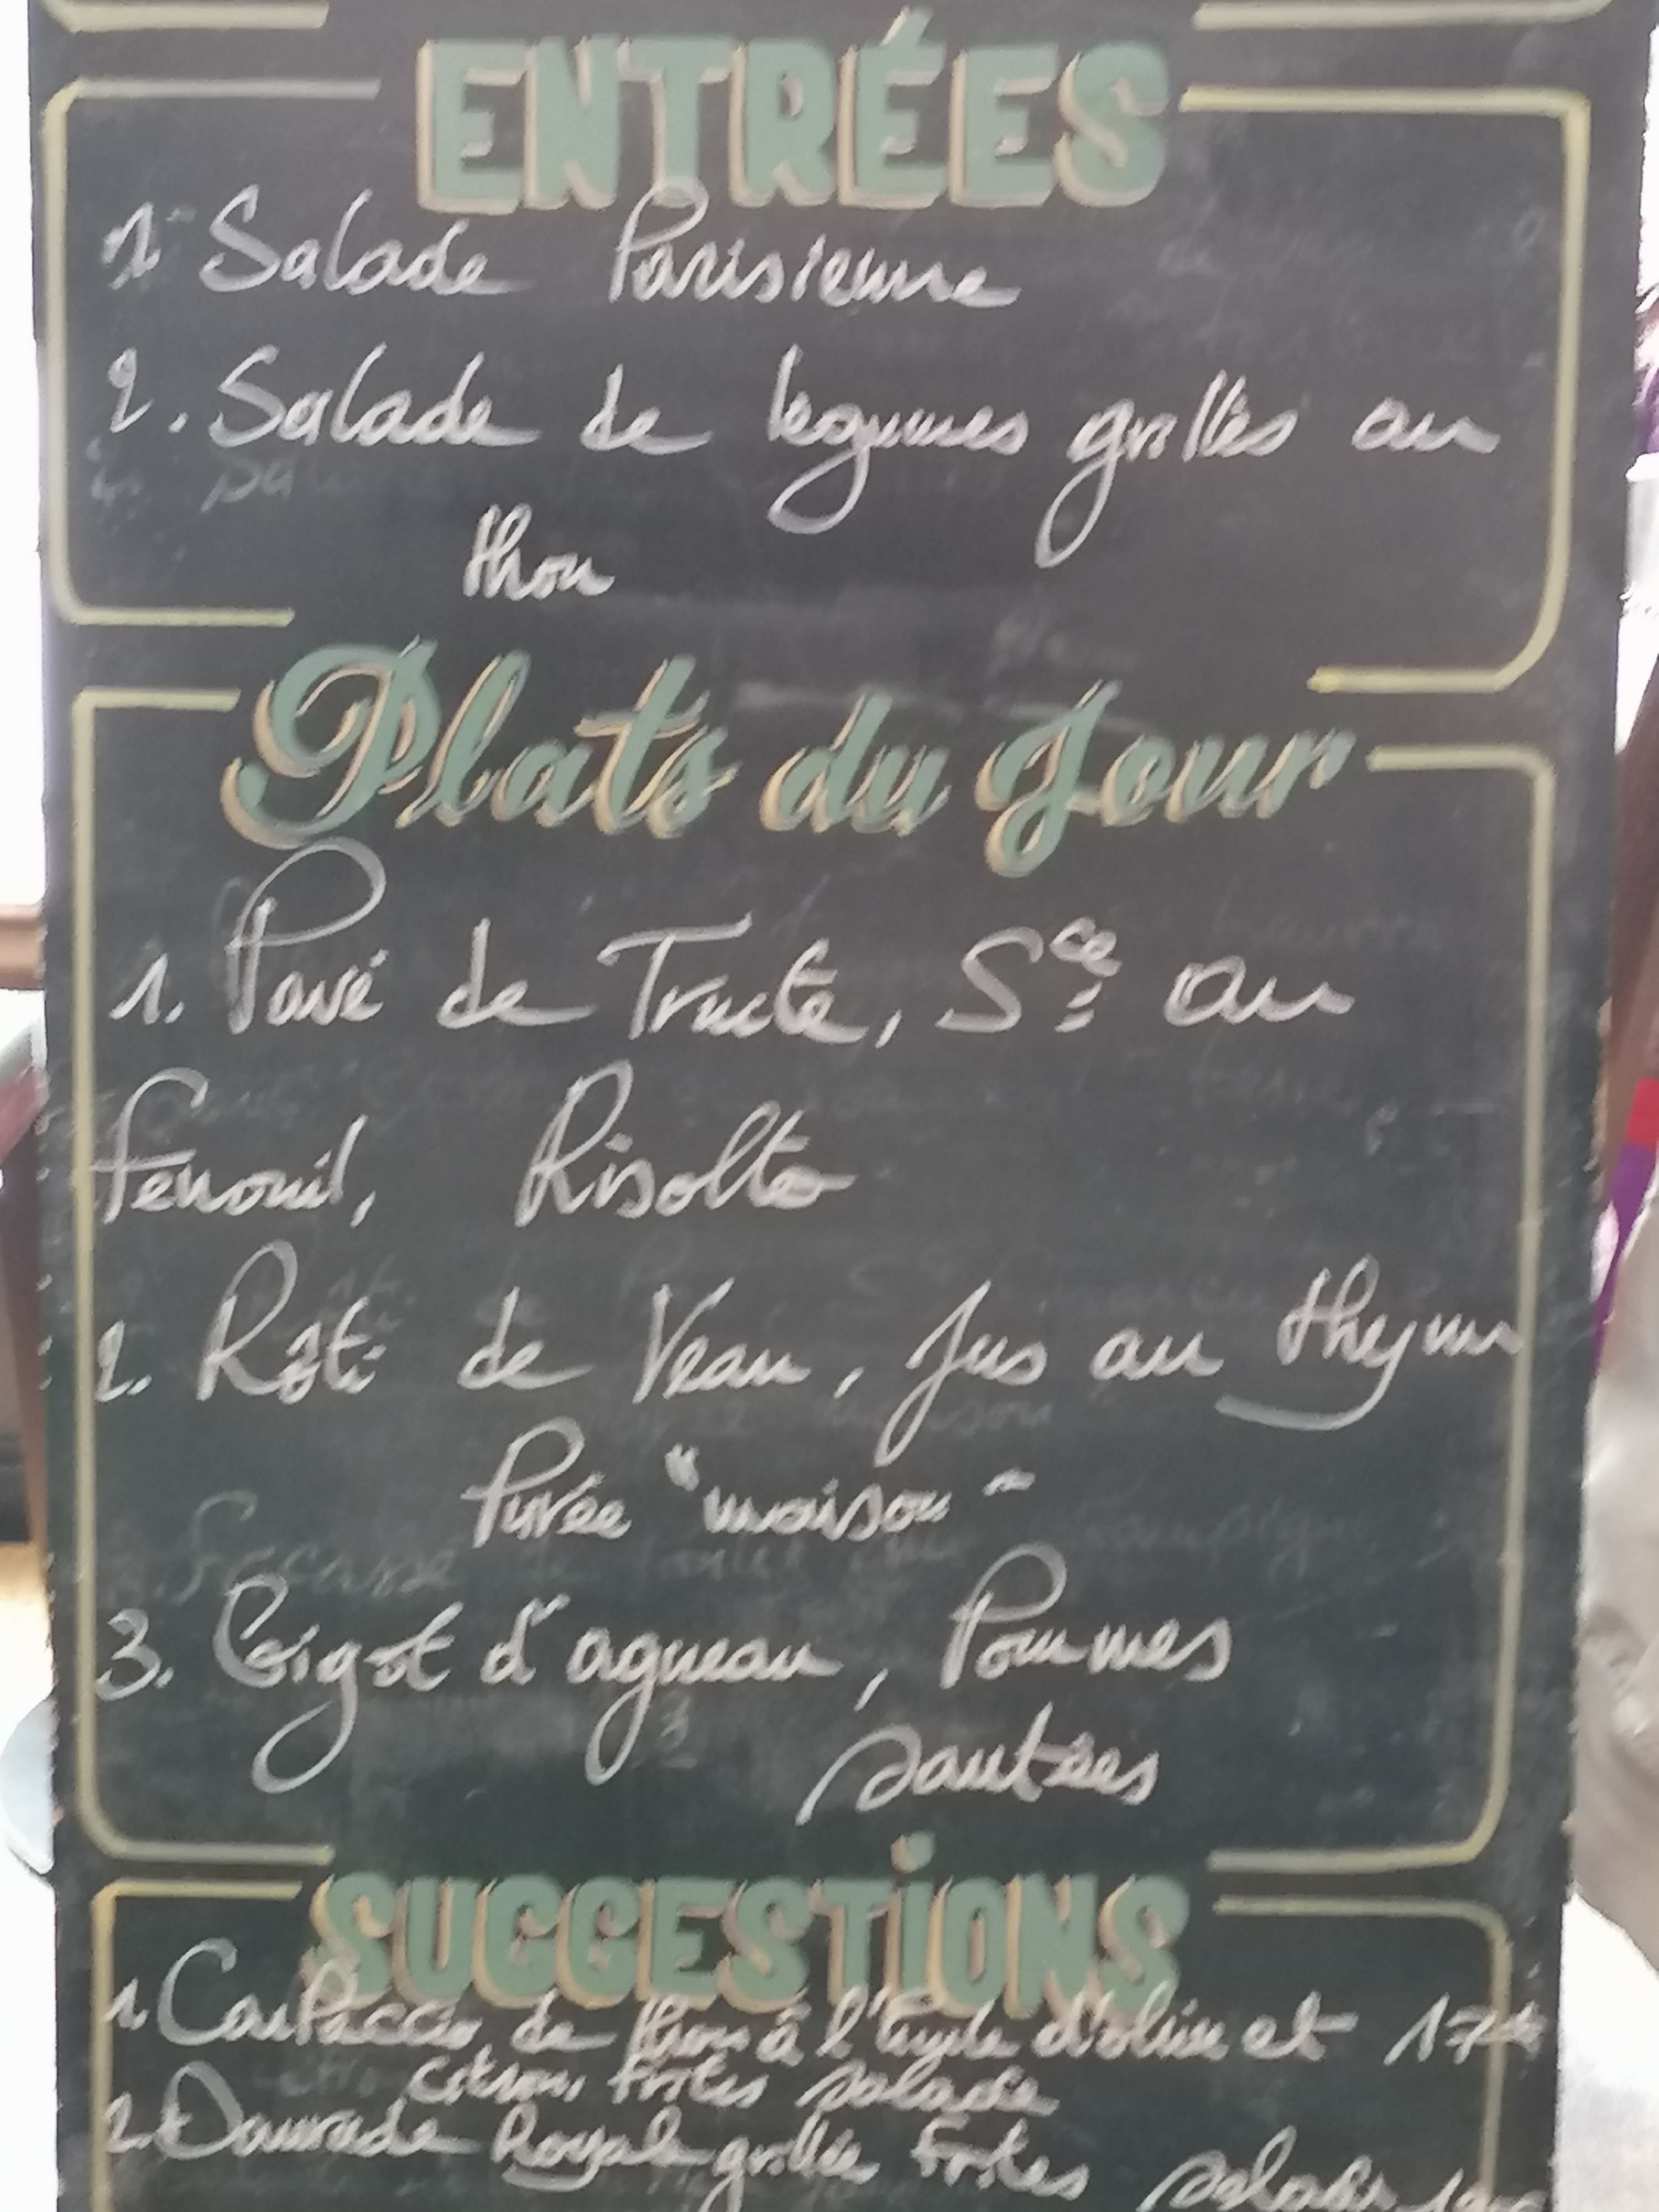 ENTRÉES
1. Salade Parisienne
2. Salade de légumes grillés au
thon
Plats du Jour
1. Pavé de Tructe, Sce au
fenouil, Risotto
2. Rôti de Veau, jus au thym
Purée "maison"
3. Gigot d'agneau, Pommes
sautées
SUGGESTIONS
1. CarPaccio de thon à l'huile d'olive et 17€
citron, frites salade
2. Daurade Royale grillée frites salade